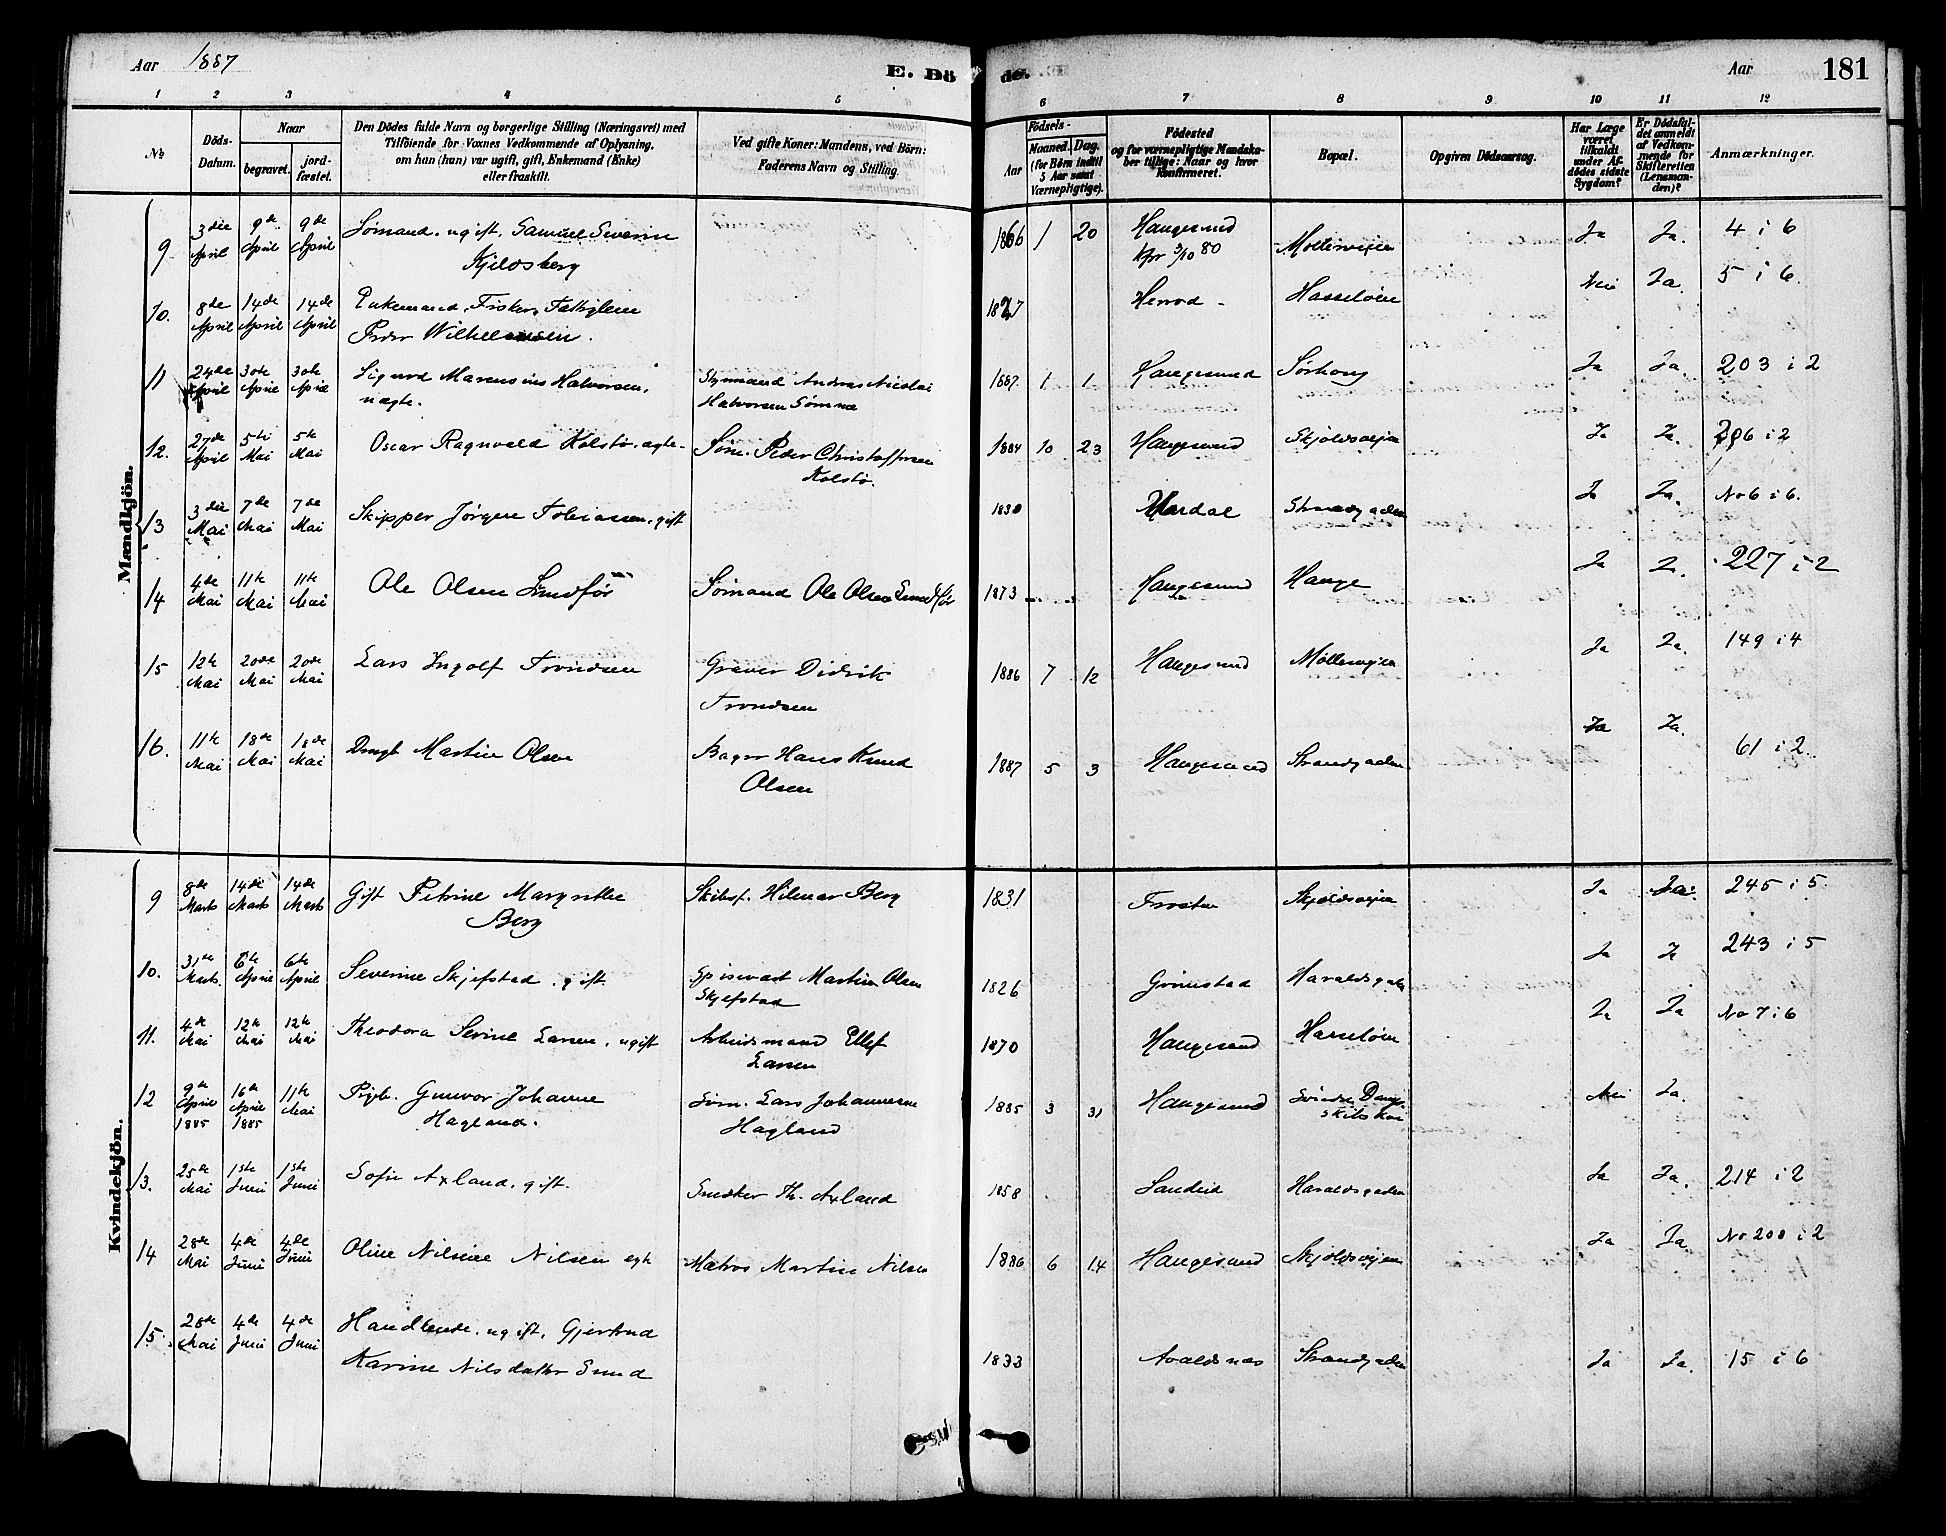 Aar 1887
E. Dö
de.
Aar
181
1 2 3 4 5
6 7 8 9 10 11 12
№
Döds-
Datum.
Naar
begravet.
jord-
fæstet.
Den Dödes fulde Navn og borgerlige Stilling (Næringsvei) med
Tilföiende for Voxnes Vedkommende af Oplysning,
om han (hun) var ugift, gift, Enkemand (Enke)
eller fraskilt.
Ved gifte Koner: Mandens, ved Börn:
Faderens Navn og Stilling.
Födsels-
Aar
Maaned.
Dag.
(for Börn indtil
5 Aar samt
Værnepligtige).
Födested
og for værnepligtige Mandska-
ber tillige: Naar og hvor
konfirmeret.
Bopæl.
Opgiven Dödsaarsag.
Har Læge
været
tilkaldt
under Af-
dödes sidste
Sygdom?
Er Dödsfal-
det anmeldt
af Vedkom-
mende for
Skifteretten
(Lensman-
den)?
Anmærkninger.
Mandkjön.
9 3die April 9de April 9de April Sømand. ugift. Samuel Severin
Kjeldsberg
1866 1 20 Haugesund
Kfr 3/10 80
Møllervejen Ja Ja. 4 i 6
10. 8de April 14de April 14de April Enkemand, Fisker, Fattiglem
Peder Wilhelmsen.
1827 Hasseløen Nei Ja. 5 i 6.
11 24de April 30te April 30te April Sigurd Marensius Halvorsen,
uægte.
Styrmand Andreas Nicolai
Halvorsen Sømme
1887. 1 1 Haugesund Sørhoug Ja Ja. 203 i 2
12. 27de April 5te Mai 5te Mai Oscar Ragnvald Kolstø. ægte.
Søm. Peder Christoffersen
Kolstø.
1884 10 23 Haugesund Skjoldsvejen Ja Ja. 206 i 2
13 3die Mai 7de Mai 7de Mai Skipper Jørgen Tobiassen. gift
1830 Strandgaden Ja Ja. No 6 i 6.
14 4de Mai 11te Mai 11te Mai Ole Olsen
Sømand Ole Olsen
1873 Haugesund Hauge Ja Ja. 227 i 2
15 12te Mai 20de Mai 20de Mai Lars Ingolf Trondsen
Graver Didrik
Trondsen
1886 7 12 Haugesund Møllervejen Ja Ja. 149 i 4
16. 11te Mai 18de Mai 18de Mai Drngb. Martin Olsen
Bager Hans Knud
Olsen
1887 5 3 Haugesund Strandgaden Ja Ja. 61 i 2.
Kvindekjön.
9 8de Marts 14de Marts 14de Marts Gift Petrine Margrethe
Berg
Skibsf. Hilmar Berg
1831 Frosta Skjoldsvejen Ja Ja. 245 i 5.
10. 31te Marts 6te April 6te April Severine Skjefstad. gift.
Spisevært Martin Olsen
Skjefstad
1826 Grimstad Haraldsgaden Ja Ja 243 i 5
11. 4de Mai 12te Mai 12te Mai Theodora Serine Larsen. ugift
Arbeidsmand Ellef
Larsen
1870 Haugesund Hasseløen Ja Ja No 7 i 6
12 9de April 1885 16de April 1885 11te Mai Pigeb. Gunvor Johanne
Hagland.
Søm. Lars Johannesen
Hagland
1885 3 31 Haugesund Nei Ja.
13. 25de Mai 1ste Juni 1ste Juni Sofie Axland. gift.
Snedker Th. Axland
1858 Sandeid Haraldsgaden Ja Ja. 214 i 2
14 28de Mai 4de Juni 4de Juni Oline Nilsine Nilsen egte
Matros Martin Nilsen
1886 6 14 Haugesund Skjoldsvejen Ja Ja. No 200 i 2
15. 28de Mai 4de Juni 4de Juni Handlende. ugift. Gjertrud
Karine Nilsdatter Sund
1833 Avaldsnes Strandgaden Ja Ja. 15 i 6